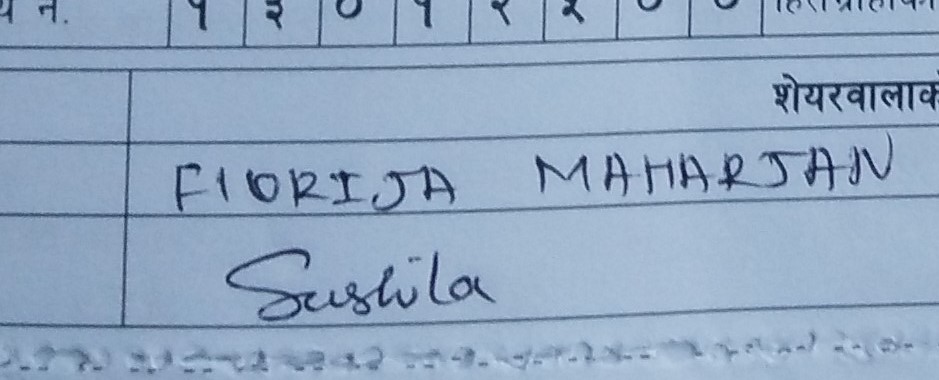 नं. १ ३ ० १ २ २ ० ०
शेयरवालाको
FIORIJA MAHARJAN
Sushila